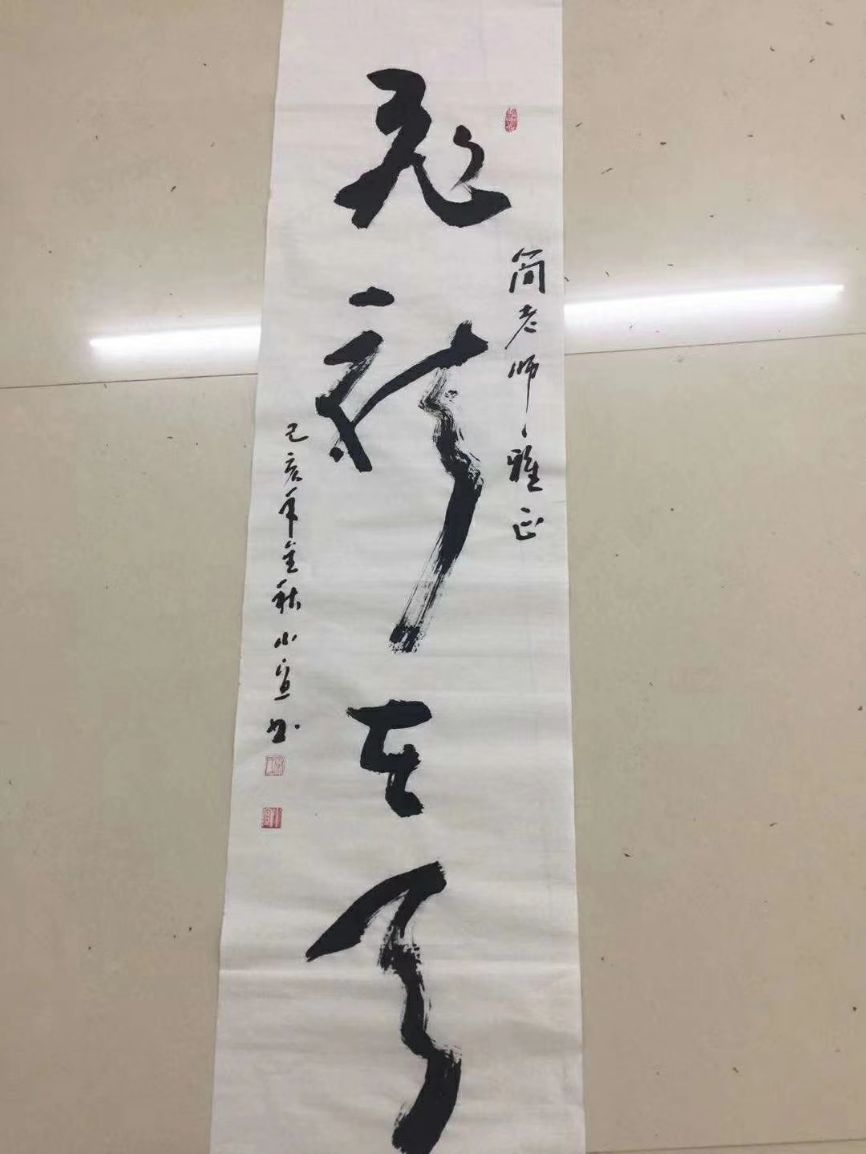 简老师雅正
飞龙在天
己亥年金秋小宣书